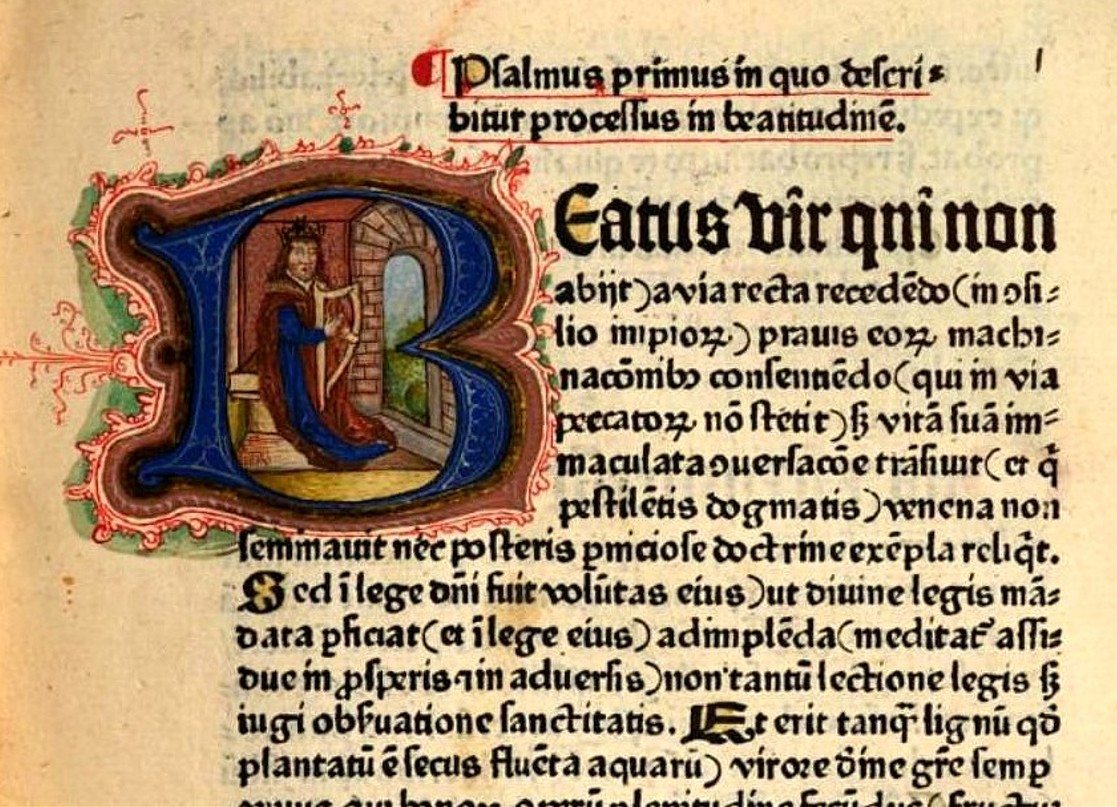 ¶ Psalmus primus in quo descri⸗
bitur processus in beatitudinē.
I
BEatus vir q̄ui non
abijt) a via recta recedēdo (in ꝯsi⸗
lio impioꝝ) prauis eoꝝ machi⸗
nacōnibꝫ consentiēdo (qui in via
peccatoꝝ nō stetit) sꝫ vitā suā im⸗
maculata ꝯuersacōe trāsiuit (et q̄
pestilētis dogmatis) venena non
seminauit nec posteris pniciose doctrine exēpla reliq̄t.
Sed ī lege dn̄i fuit volūtas eius) ut diuine legis mā⸗
data ꝑficiat (et ī lege eius) adimplēda (meditat᷑ assi⸗
due in ꝓsperis ⁊ in aduersis) non tantū lectione legis sꝫ
iugi obſuatione sanctitatis. Et erit tanq̄ lignū qd̄
plantatū ē secus fluēta aquarū) virore diīne gr̄e semꝑ